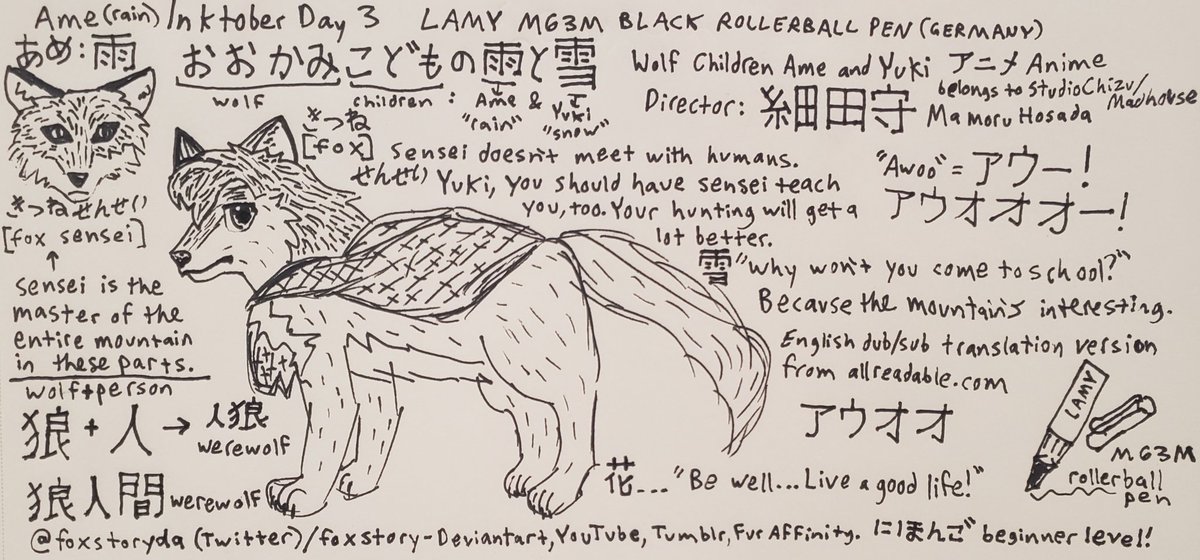 Ame (rain) / Inktober Day 3 LAMY M63M BLACK ROLLERBALL PEN (GERMANY)
あめ:雨
おおかみこどもの雨と雪
wolf children: Ame & Yuki
"rain" "snow"
Wolf Children Ame and Yuki アニメ Anime
belongs to Studio Chizu/Madhouse
Director: 細田守 Mamoru Hosada
きつね
[fox] sensei doesn't meet with humans.
せんせい Yuki, you should have sensei teach
you, too. Your hunting will get a
lot better.
"Awoo" = アウー!
アウオオオー!
きつねせんせい
[fox sensei]
↑
sensei is the
master of the
entire mountain
in these parts.
雪 "why won't you come to school?"
Because the mountain's interesting.
English dub/sub translation version
from allreadable.com
アウオオ
wolf+person
狼 + 人 → 人狼
werewolf
狼人間 werewolf
花... "Be well... Live a good life!"
LAMY
M63M
rollerball
pen
@foxstoryda (Twitter)/foxstory-Deviantart, YouTube, Tumblr, Fur Affinity. にほんご beginner level!